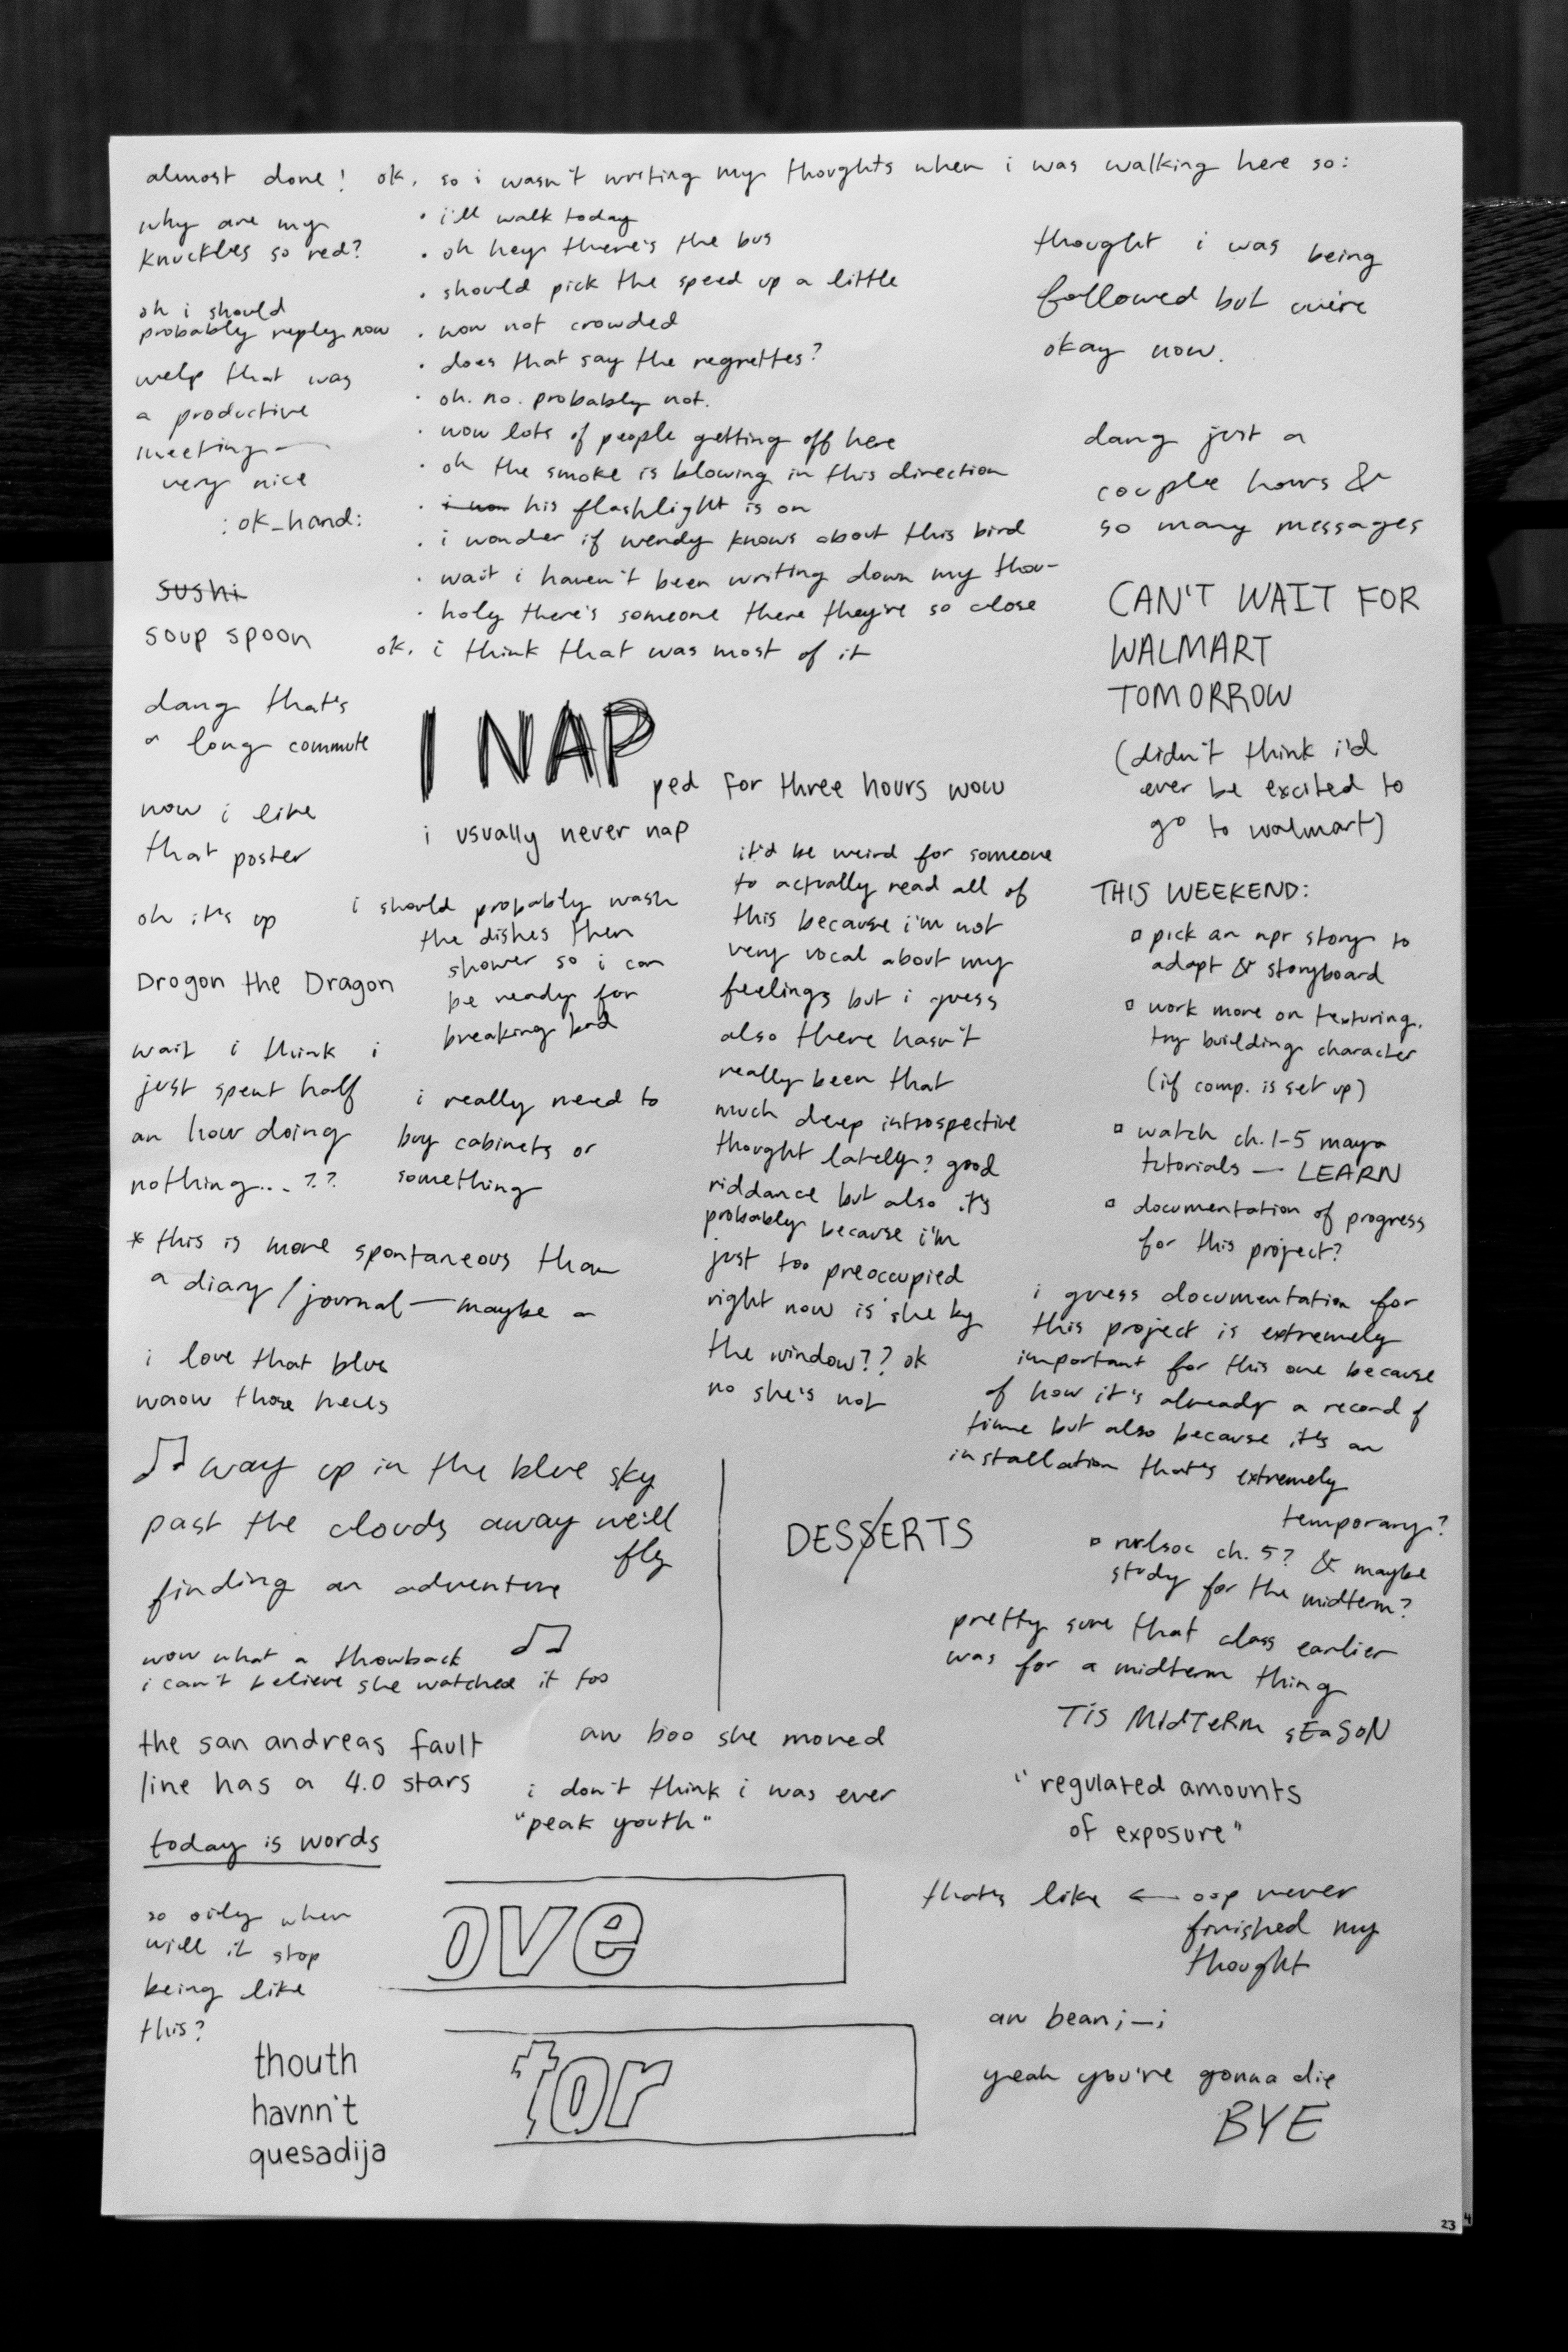 almost done! ok, so i wasn't writing my thoughts when i was walking here so:
why are my
knuckles so red?
oh i should
probably reply now
welp that was
a productive
meeting —
very nice
:ok_hand:
sushi
soup spoon
dang that's
a long commute
wow i like
that poster
oh it's up
Drogon the Dragon
wait i think i
just spent half
an hour doing
nothing... ??
• i'll walk today
• oh hey there's the bus
• should pick the speed up a little
• wow not crowded
• does that say the regrettes?
• oh. no. probably not.
• wow lots of people getting off here
• oh the smoke is blowing in this direction
• his flashlight is on
• i wonder if wendy knows about this bird
• wait i haven't been writing down my thou-
• holy there's someone there they're so close
ok, i think that was most of it
I NAP
ped for three hours wow
i usually never nap
i should probably wash
the dishes then
shower so i can
be ready for
breaking bad
i really need to
buy cabinets or
something
* this is more spontaneous than
a diary/journal — maybe a
i love that blue
waow those heels
♫ way up in the blue sky
past the clouds away we'll
fly
finding an adventure
♫
wow what a throwback
i can't believe she watched it too
the san andreas fault
line has a 4.0 stars
today is words
so oily when
will it stop
being like
this?
thouth
havnn't
quesadija
it'd be weird for someone
to actually read all of
this because i'm not
very vocal about my
feelings but i guess
also there hasn't
really been that
much deep introspective
thought lately? good
riddance but also it's
probably because i'm
just too preoccupied
right now is she by
the window?? ok
no she's not
DESSERTS
aw boo she moved
i don't think i was ever
"peak youth"
ove
tor
thought i was being
followed but we're
okay now.
dang just a
couple hours &
so many messages
CAN'T WAIT FOR
WALMART
TOMORROW
(didn't think i'd
ever be excited to
go to walmart)
THIS WEEKEND:
▫ pick an npr story to
adapt & storyboard
▫ work more on texturing,
try building character
(if comp. is set up)
▫ watch ch. 1-5 maya
tutorials — LEARN
▫ documentation of progress
for this project?
i guess documentation for
this project is extremely
important for this one because
of how it's already a record of
time but also because it's an
installation that's extremely
temporary?
▫ ch. 5? & maybe
study for the midterm?
pretty sure that class earlier
was for a midterm thing
TiS MIdTeRm sEaSoN
"regulated amounts
of exposure"
that's like ← oop never
finished my
thought
aw bean ;—;
yeah you're gonna die
BYE
23
4